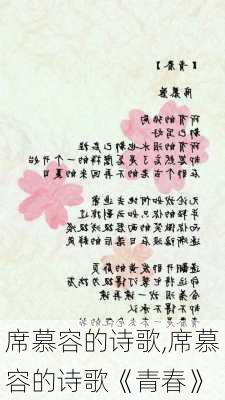 【青春】
席慕蓉
所有的结局
都已写好
所有的泪水也都已启程
却忽然忘了是怎么样的一个开始
在那个古老的不再回来的夏日
无论我如何地去追索
年轻的你只如云影掠过
而你微笑的面容极浅极淡
逐渐隐没在日落后的群岚
遂翻开那发黄的扉页
命运将它装订得极为拙劣
含泪 我一读再读
却不得不承认
席慕容的诗歌,席慕
容的诗歌《青春》